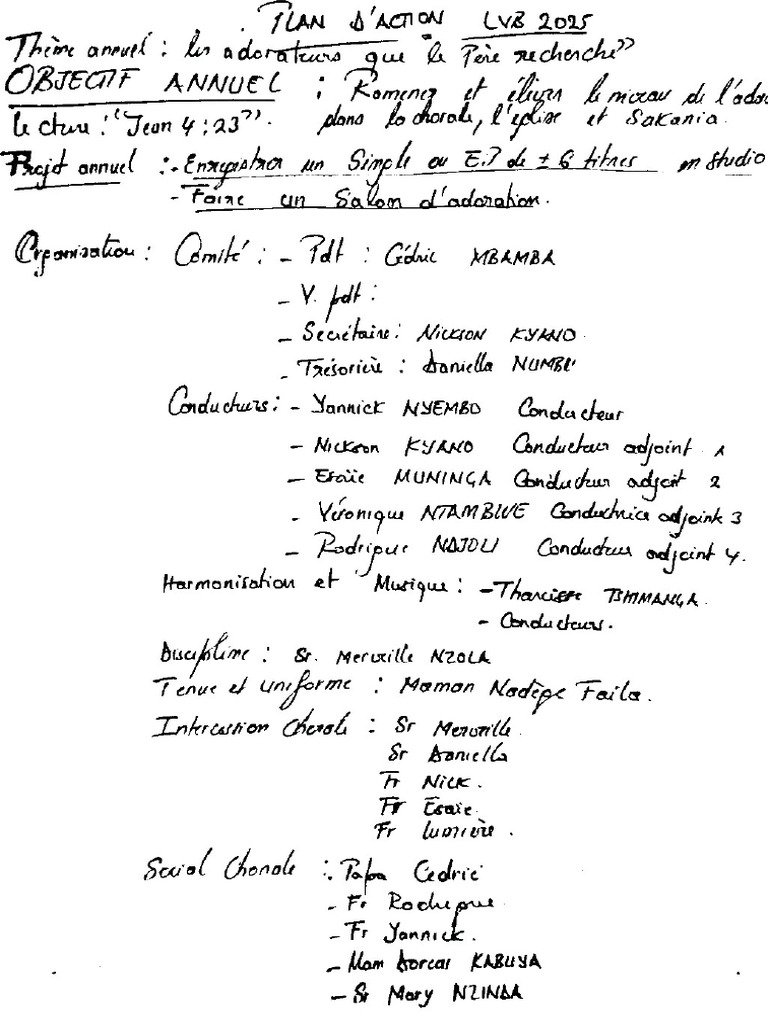 PLAN D'ACTION LVB 2025
Thème annuel : les adorateurs que le Père recherche"
OBJECTIF ANNUEL : Ramenez et élever le niveau de l'ador
lecture : "Jean 4 : 23". dans la chorale, l'église et Sakania.
Projet annuel : - Enregistrer un Simple ou E.P de ± 6 titres en studio
- Faire un Salon d'adoration.
Organisation : Comité : - Pdt : Cédric MBAMBA
- V. pdt :
- Secrétaire : Nickson KYANO
- Trésorière : Daniella NUMBI
Conducteurs : - Yannick NYEMBO Conducteur
- Nickson KYANO Conducteur adjoint 1
- Esaïe MUNINGA Conducteur adjoit 2
- Véronique NTAMBWE Conductrice adjointe 3
- Rodrigue NDJOLI Conducteur adjoint 4.
Harmonisation et Musique : - Tharcisse TSHIMANGA.
- Conducteurs.
Discipline : Sr. Merveille NZOLA
Tenue et uniforme : Maman Nadège Faila.
Intercession Chorale : Sr Merveille
Sr Daniella
Fr Nick.
Fr Esaïe
Fr lumière.
Social Chorale : Papa Cedric
- Fr Rodrigue
- Fr Yannick.
- Mam Dorcas KABUYA
- Sr Mary NZINDA